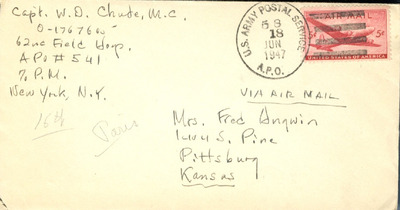 Capt. W. D. Chute, M.C.
O-1767600
62nd Field Hosp.
APO # 541
% P.M.
New York, N.Y.
U.S. ARMY POSTAL SERVICE
18
JUN
1947
A.P.O.
AIR MAIL
5¢
UNITED STATES OF AMERICA
VIA AIR MAIL
15th
Paris
Mrs. Fred Angwin
1404 S. Pine
Pittsburg
Kansas